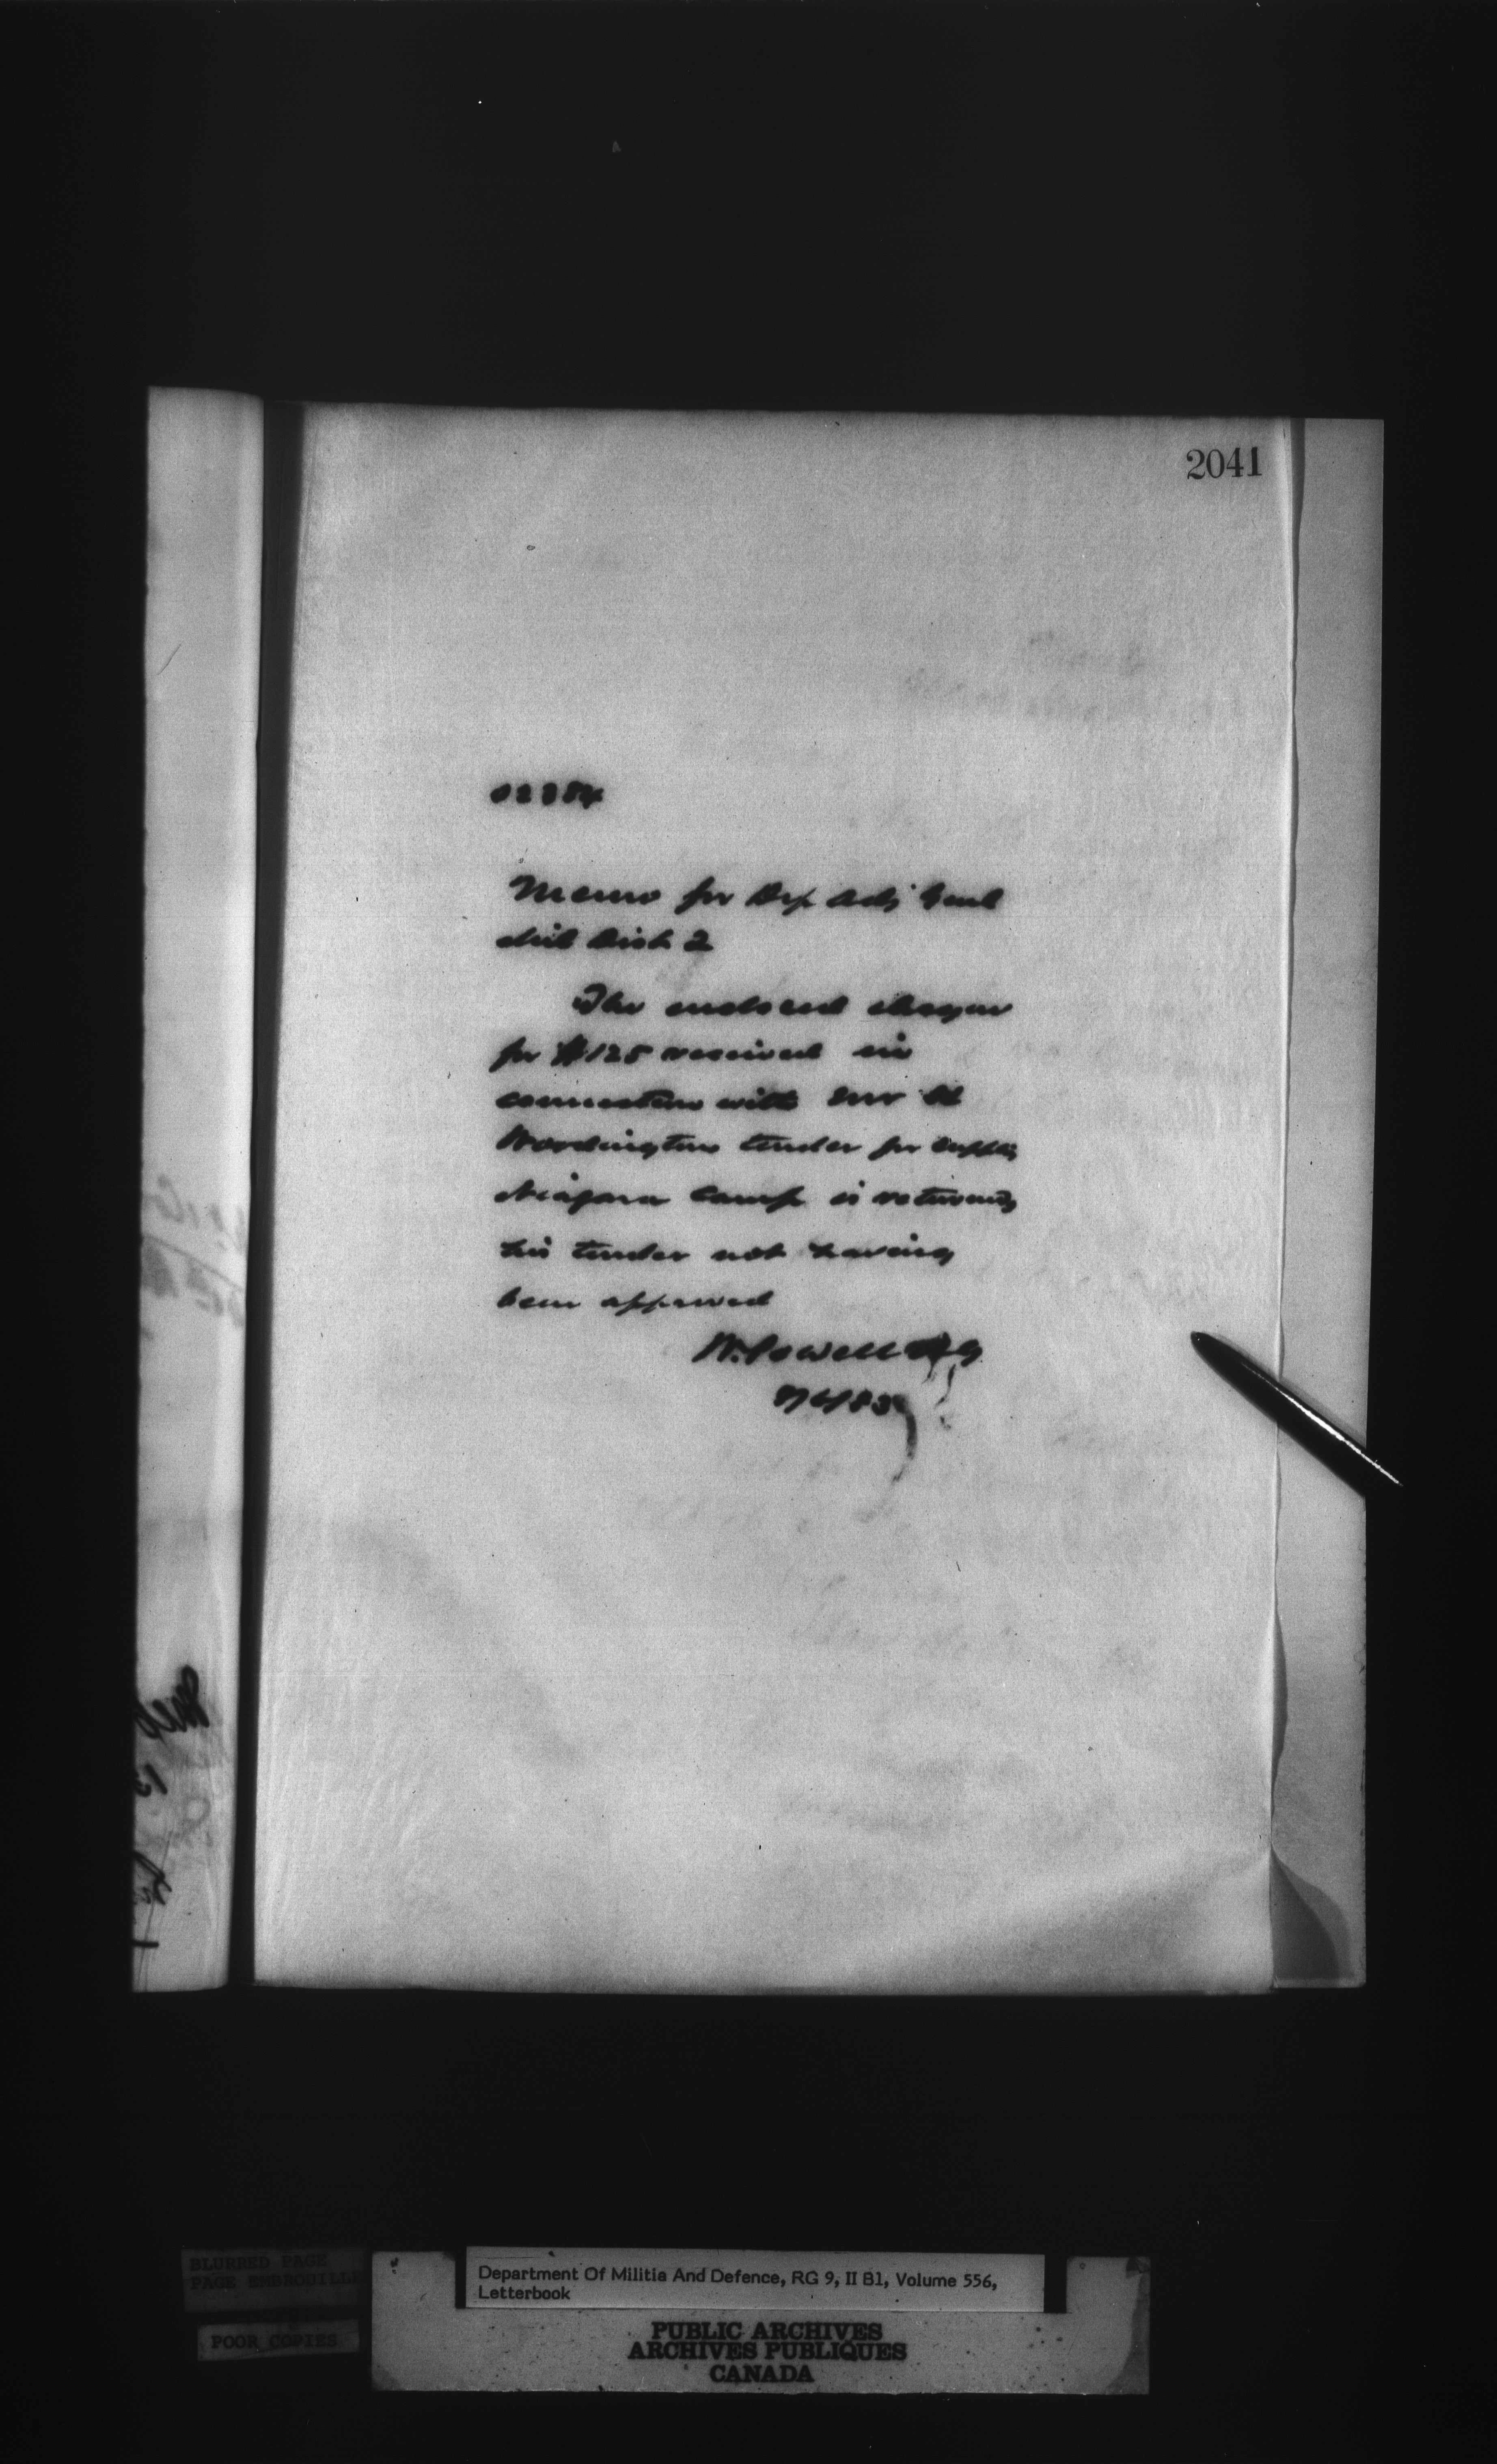 2041
02384
Memo for Dep Adj Genl
Mil Dist 2
The enclosed cheque
for $125 received in
connection with Mr
Wordington tender for supplies
Niagara Camp is returned,
his tender not having
been approved
W. Powell AG
BLURRED PAGE
PAGE EMBROUILLE
POOR COPIES
Department Of Militia And Defence, RG 9, II B1, Volume 556,
Letterbook
PUBLIC ARCHIVES
ARCHIVES PUBLIQUES
CANADA